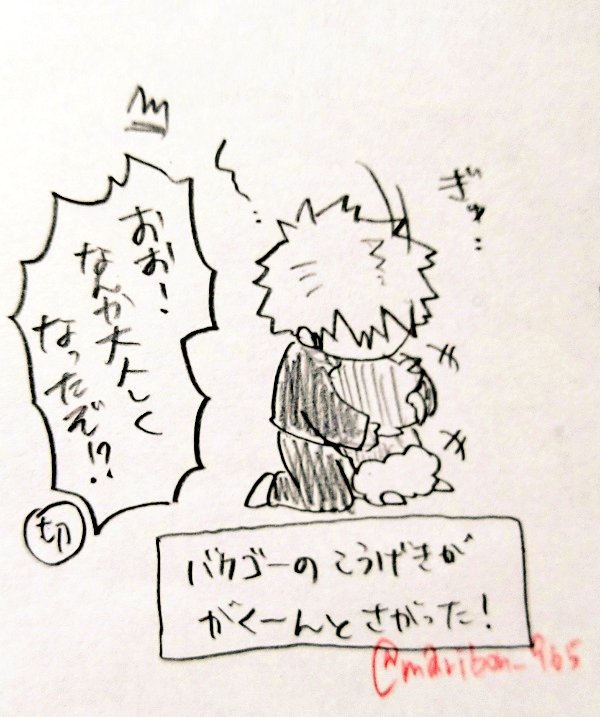 ぎゅ‥
おお!
なんか大人しく
なったぞ!?
切
バクゴーのこうげきが
がくーんとさがった!
@maribon_965